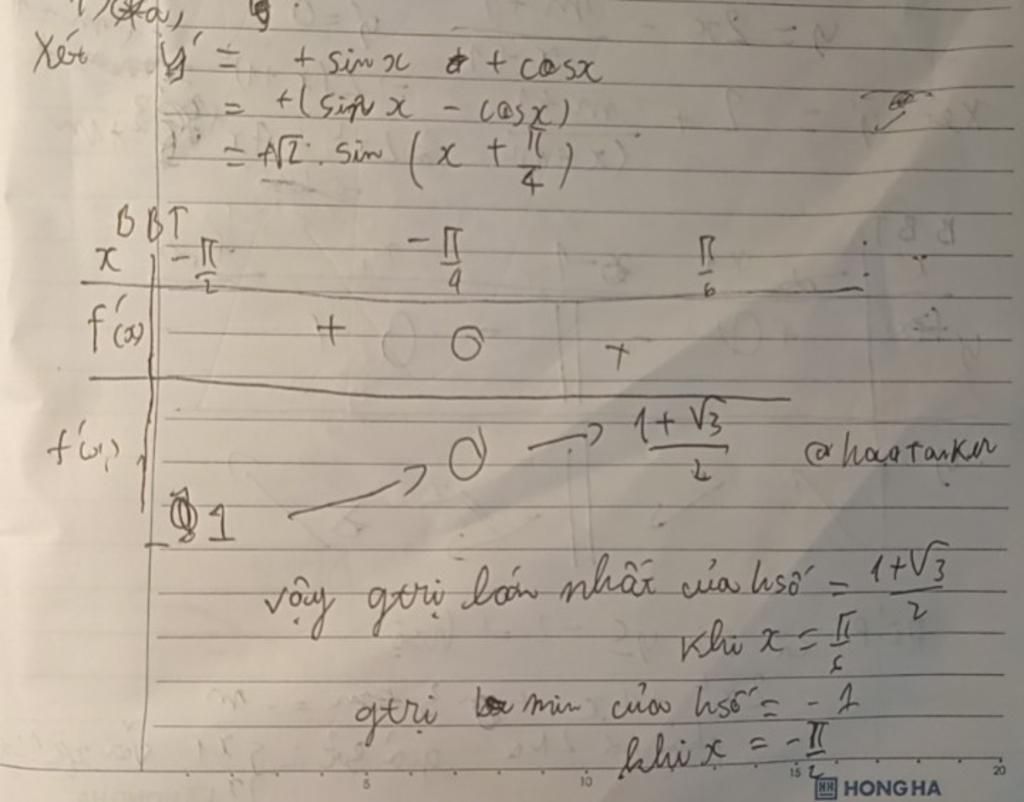 1) a,
Xét y' = + sin x + cosx
= +(sin x - cosx)
= +√2 . sin (x + π/4)
BBT
x -π/2 -π/4 π/6
f'(x) + 0 +
f(x) -1 0 (1+√3)/2
@haotarker
Vậy gtrị lớn nhất của hsố = (1+√3)/2
Khi x = π/6
gtrị min của hsố = - 1
khi x = -π/2
5 10 15 20
HH HONG HA